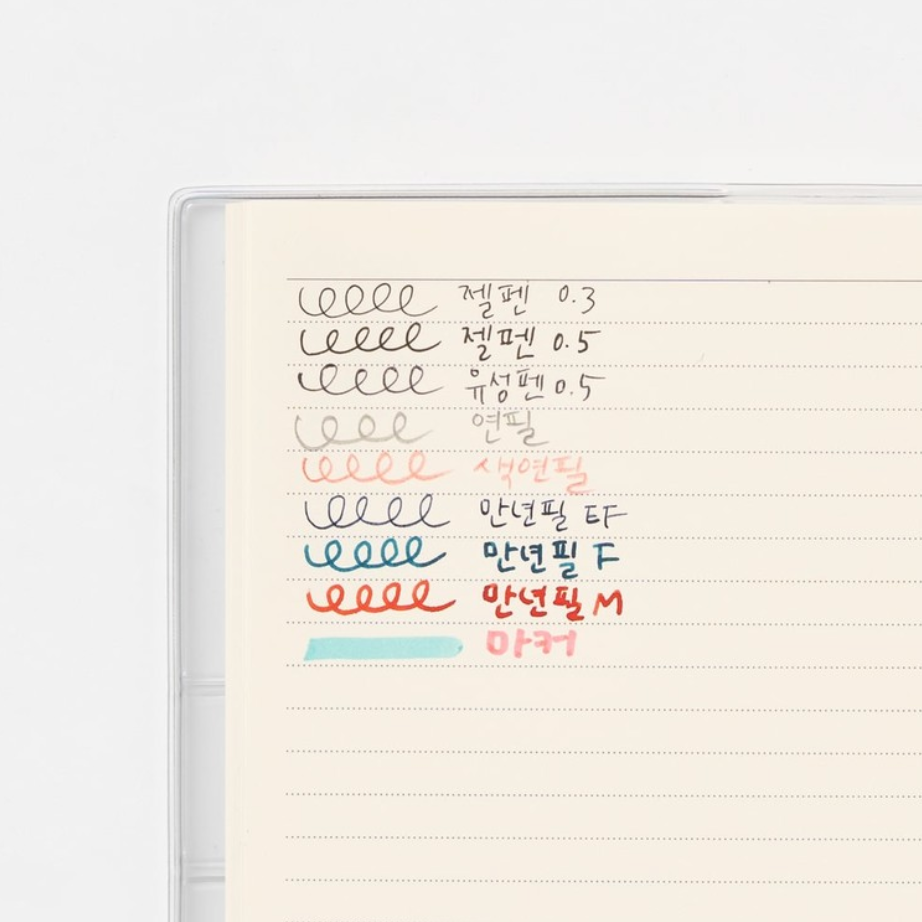 젤펜 0.3
젤펜 0.5
유성펜 0.5
연필
색연필
만년필 EF
만년필 F
만년필 M
마커